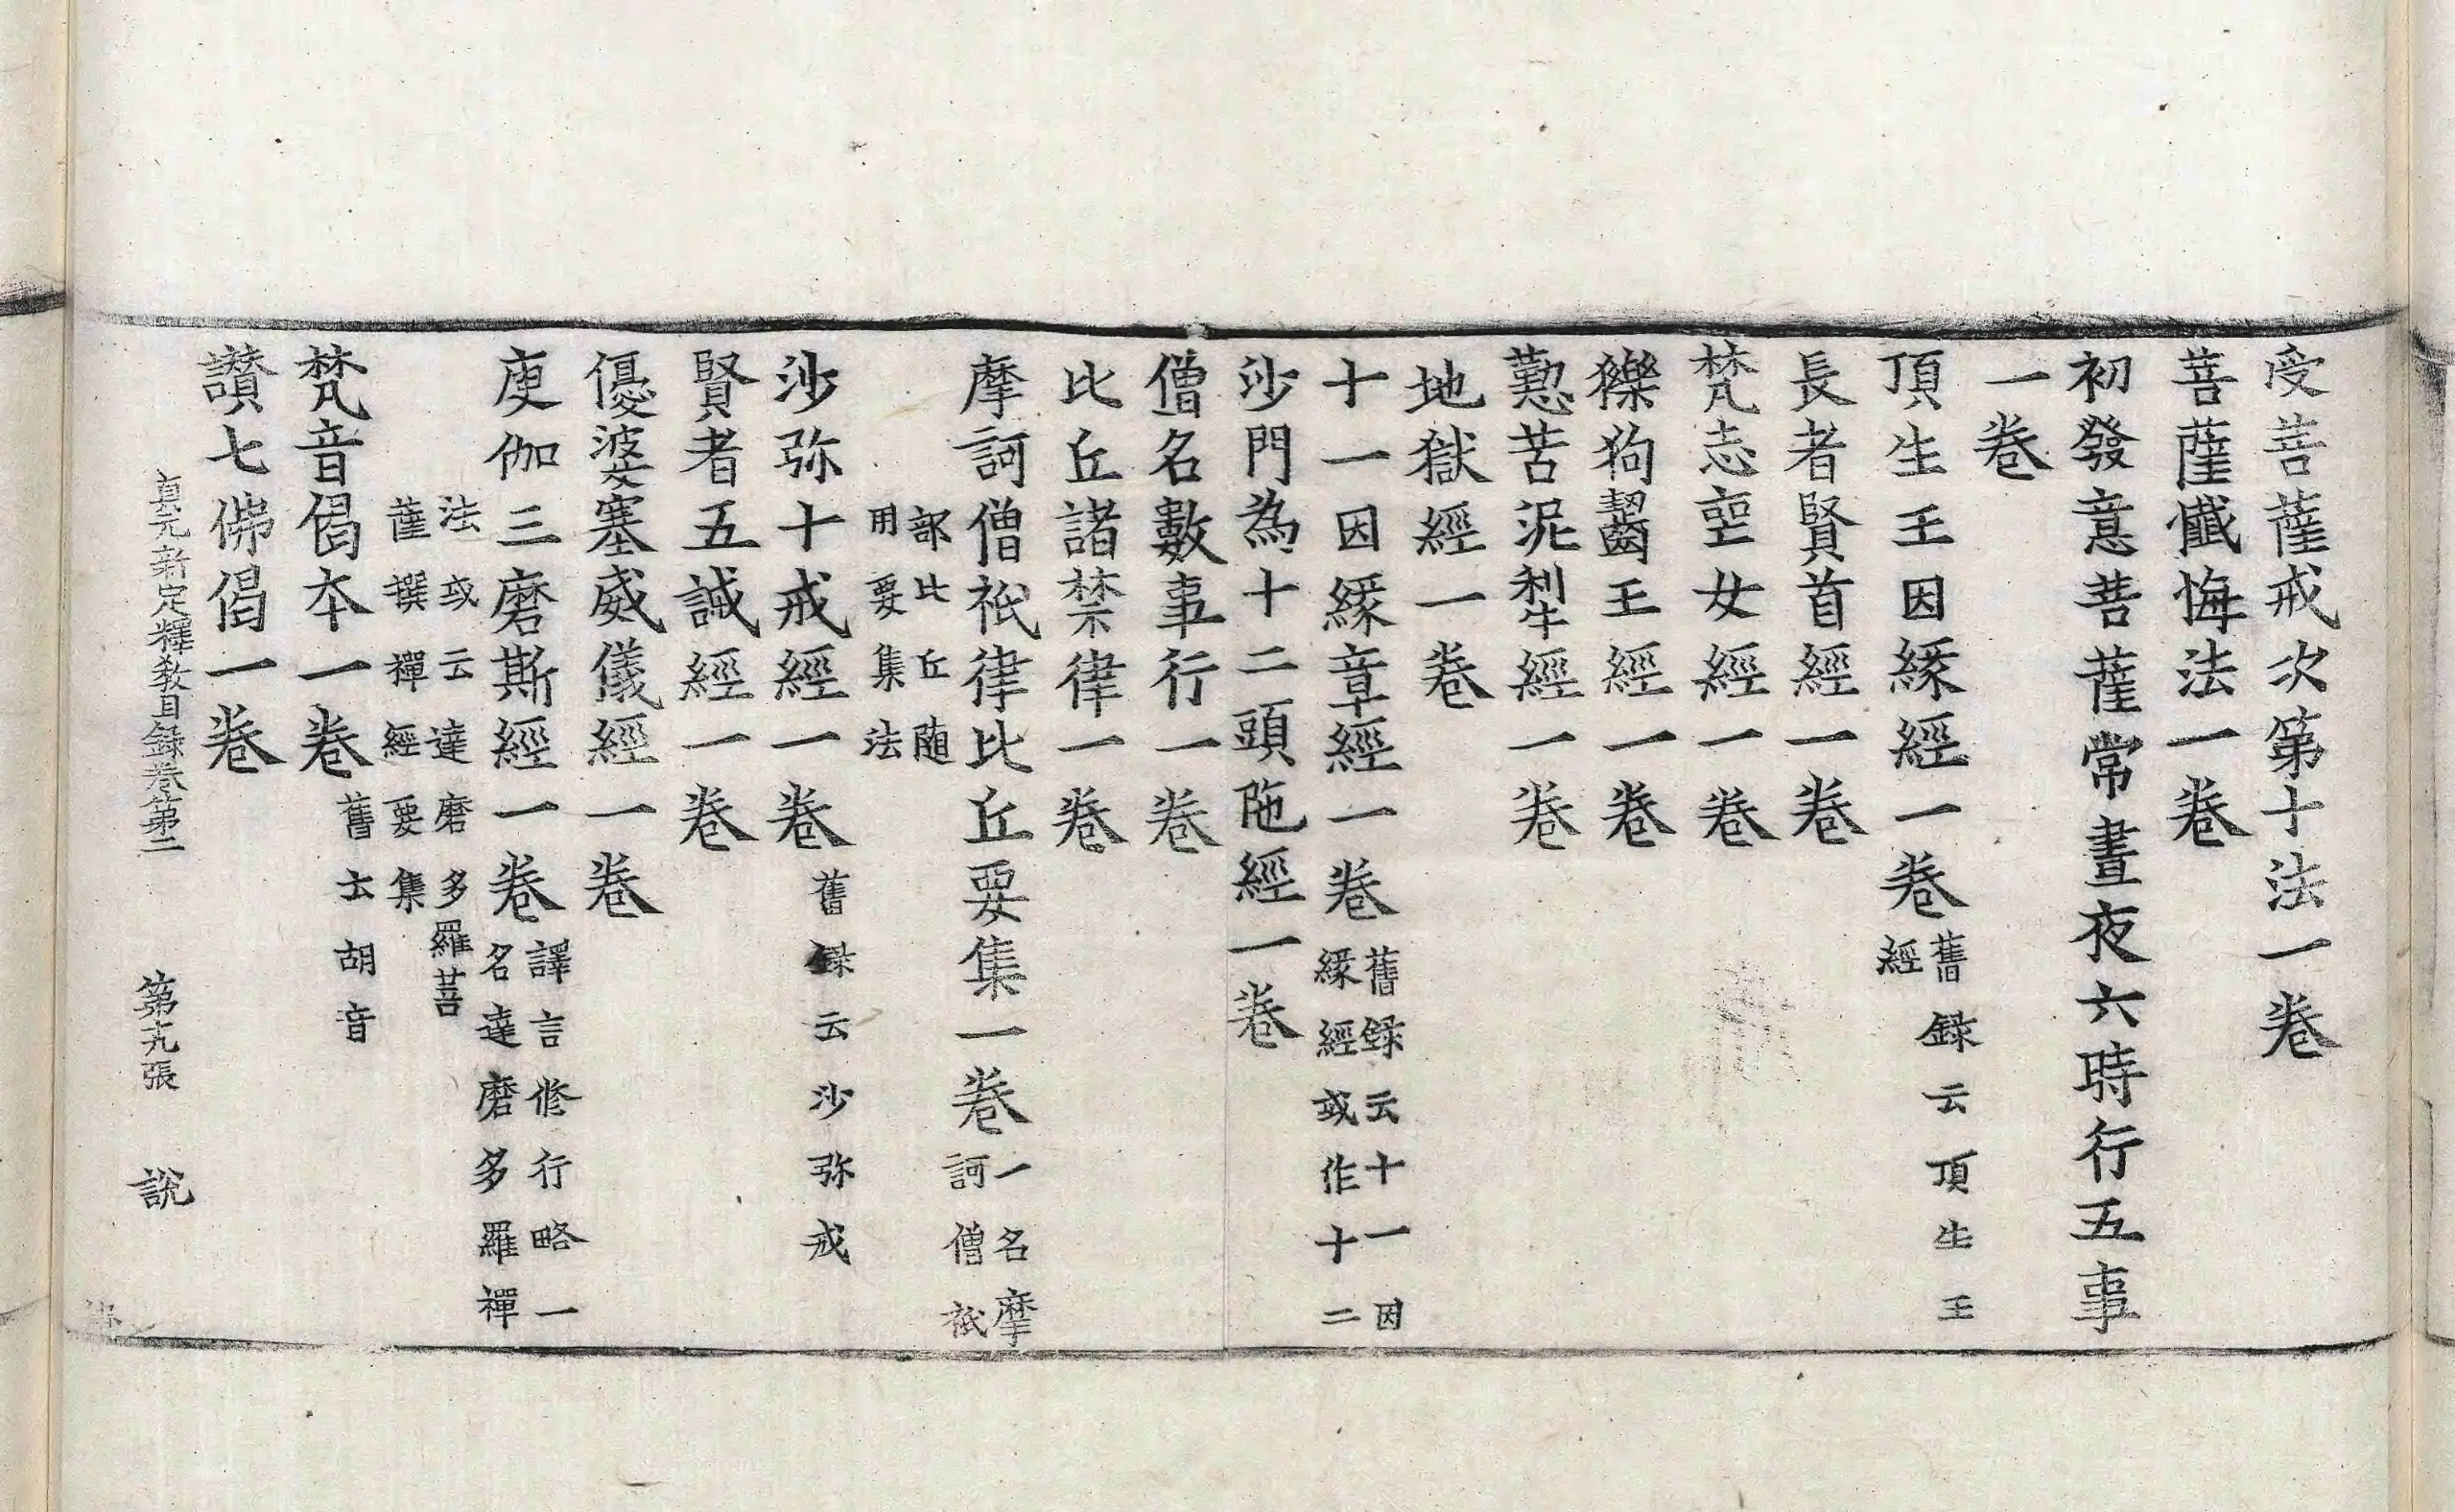 受菩薩戒次第十法一卷
菩薩懺悔法一卷
初發意菩薩常晝夜六時行五事
一卷
頂生王因緣經一卷舊録云頂生王
經
長者賢首經一卷
梵志喪女經一卷
㹎狗齧王經一卷
懃苦泥犁經一卷
地獄經一卷
十一因緣章經一卷舊録云十一因
緣經或作十二
沙門為十二頭陁經一卷
僧名數事行一卷
比丘諸禁律一卷
摩訶僧祇律比丘要集一卷一名摩
訶僧祇
部比丘随
用要集法
沙弥十戒經一卷舊録云沙弥戒
賢者五誡經一卷
優婆塞威儀經一卷
庾伽三磨斯經一卷譯言修行略一
名達磨多羅禪
法或云達磨多羅菩
薩撰禪經要集
梵音偈本一卷舊云胡音
讃七佛偈一卷
貞元新定釋教目録卷第二 第十九張 說